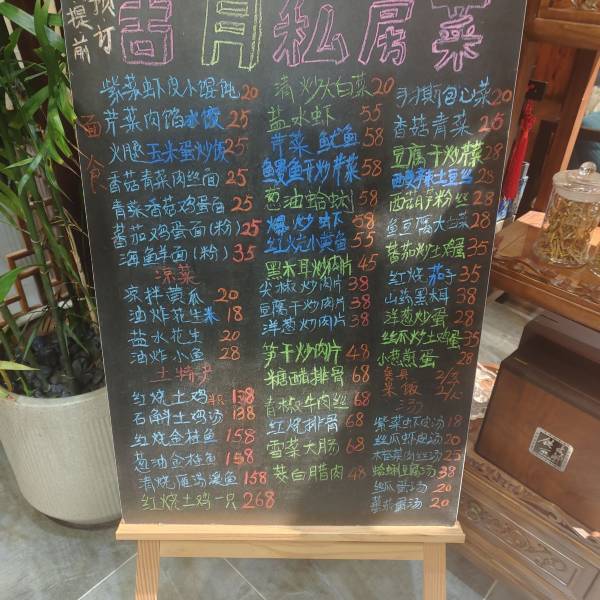 预订
提前
吉月私居菜
面食
紫菜虾皮小馄饨20
芹菜肉馅水饺25
火腿玉米蛋炒饭25
香菇青菜肉丝面25
青菜香菇鸡蛋面25
蕃茄鸡蛋面(粉)25
海鲜羊面(粉)35
凉菜
凉拌黄瓜20
油炸花生米18
盐水花生20
油炸小鱼28
土特产
红烧土鸡138
石斛土鸡汤138
红烧金桂鱼158
葱油金桂鱼158
清炖雁湖溪鱼158
红烧土鸡一只268
清炒大白菜20
盐水虾55
芹菜鱿鱼58
鳗鱼干炒芹菜58
葱油蛤蜊58
爆炒虾58
红烧小黄鱼55
黑木耳炒肉片45
尖椒炒肉片38
豆腐干炒肉片38
洋葱炒肉片38
笋干炒肉片48
糖醋排骨68
青椒牛肉丝68
红烧排骨68
雪菜大肠68
茭白腊肉48
手撕包心菜20
香菇青菜25
豆腐干炒芹菜28
酸辣土豆丝28
西葫芦粉丝28
鱼豆腐大白菜28
蕃茄炒土鸡蛋35
红烧茄子35
山药黑木耳38
洋葱炒蛋28
丝瓜炒土鸡蛋35
小葱煎蛋28
餐具2/套
米饭2/人
汤
紫菜虾皮汤18
丝瓜虾皮汤20
榨菜肉丝汤25
蛤蜊豆腐汤38
丝瓜蛋汤20
蕃茄蛋汤20